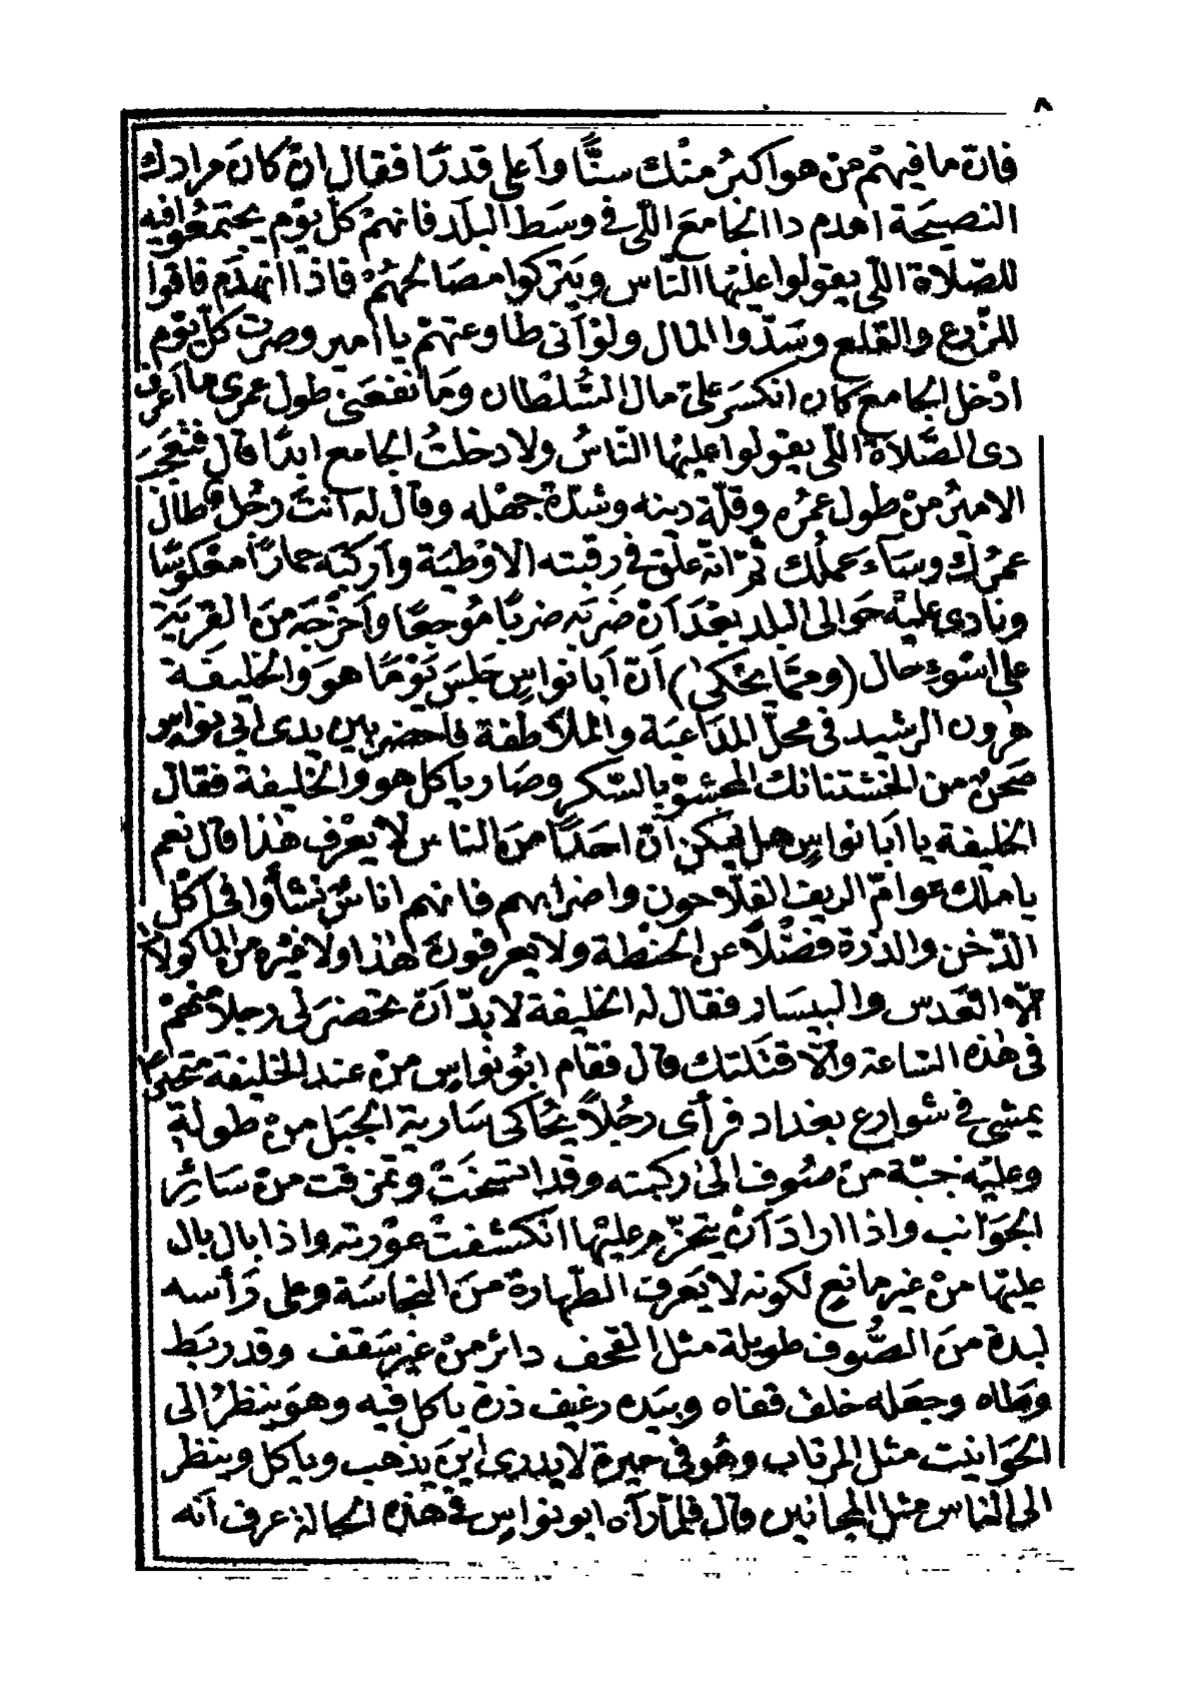 ٨
فان ما فيهم من هو اكبر منك سنًّا وأعلى قدرًا فقال ان كان مرادك
النصيحة اهدم دا الجامع اللّى فى وسط البلد فانهم كل يوم يجتمعوا فيه
للصّلاة اللّى يقولوا عليها النّاس ويتركوا مصالحهم فاذا انهدم فاقوا
للزّرع والقلع وسدّوا المال ولو أنى طاوعتهم يا امير وصرت كلّ يوم
ادخل الجامع كان انكسر علىّ مال السّلطان وما نفعنى طول عمرى ما أعرف
دى الصّلاة اللّى يقولوا عليها النّاس ولا دخلت الجامع ابدًا قال فتعجب
الامير من طول عمره وقلّة دينه وشدّة جهله وقال له انت رجل طال
عمرك وساء عملك ثم انّه علق فى رقبته الاوطية وأركبه حمارًا معكوسًا
ونادى عليه حوالى البلد بعد أن ضربه ضربًا موجعًا وأخرجه من القرية
على اسوء حال (وممّا يحكى) أنّ أبا نواس جلس يومًا هو والخليفة
هرون الرشيد فى محلّ المداعبة والملاطفة فاحضر بين يدى ابى نواس
صحن من الخشتنانك المحشوّ بالسّكر وصار ياكل هو والخليفة فقال
الخليفة يا أبا نواس هل يمكن أنّ احدًا من الناس لا يعرف هذا قال نعم
يا ملك عوامّ الريف الفلّاحون واضرابهم فانهم اناس نشأوا فى اكل
الدّخن والذرة فضلًا عن الحنطة ولا يعرفون هذا ولا غيره من المأكولات
الّا العدس والبيسار فقال له الخليفة لا بدّ أن تحضر لى رجلًا منهم
فى هذه السّاعة والّا قتلتك قال فقام ابو نواس من عند الخليفة متحيرًا
يمشى فى شوارع بغداد فرأى رجلًا يحاكى سارية الجبل من طوله
وعليه جبّة من صوف الى ركبته وقد اتسخت وتمزقت من سائر
الجوانب واذا اراد أن يتحزّم عليها انكشفت عورته واذا بال بال
عليها من غير مانع لكونه لا يعرف الطّهارة من النجاسة وعلى رأسه
لبدة من الصّوف طويلة مثل القحف دائر من غير سقف وقد ربط
وطاه وجعله خلف قفاه وبيده رغيف ذرة ياكل فيه وهو ينظر الى
الحوانيت مثل المرتاب وهو فى حيرة لا يدرى أين يذهب وياكل وينظر
الى الناس مثل المجانين قال فلمّا رآه ابو نواس فى هذه الحالة عرف أنه